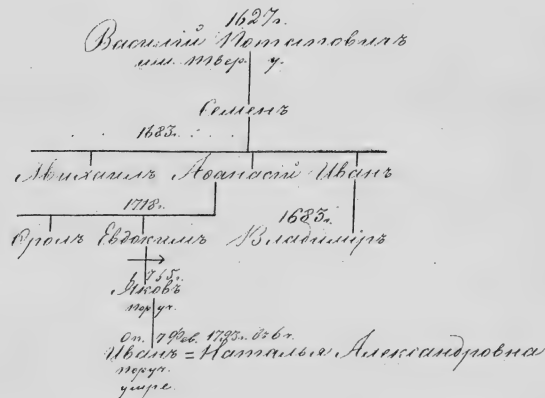 1627г.
Василій Потаповичъ
им. Твер. у.
Семенъ
1683г.
Михаилъ Аѳанасій Иванъ
1718г.
1683г.
Фролъ Евдокимъ Владиміръ
Яковъ
пор уч.
7 Фев. 1793г.
Иванъ = Наталья Александровна
поруч.
умре.